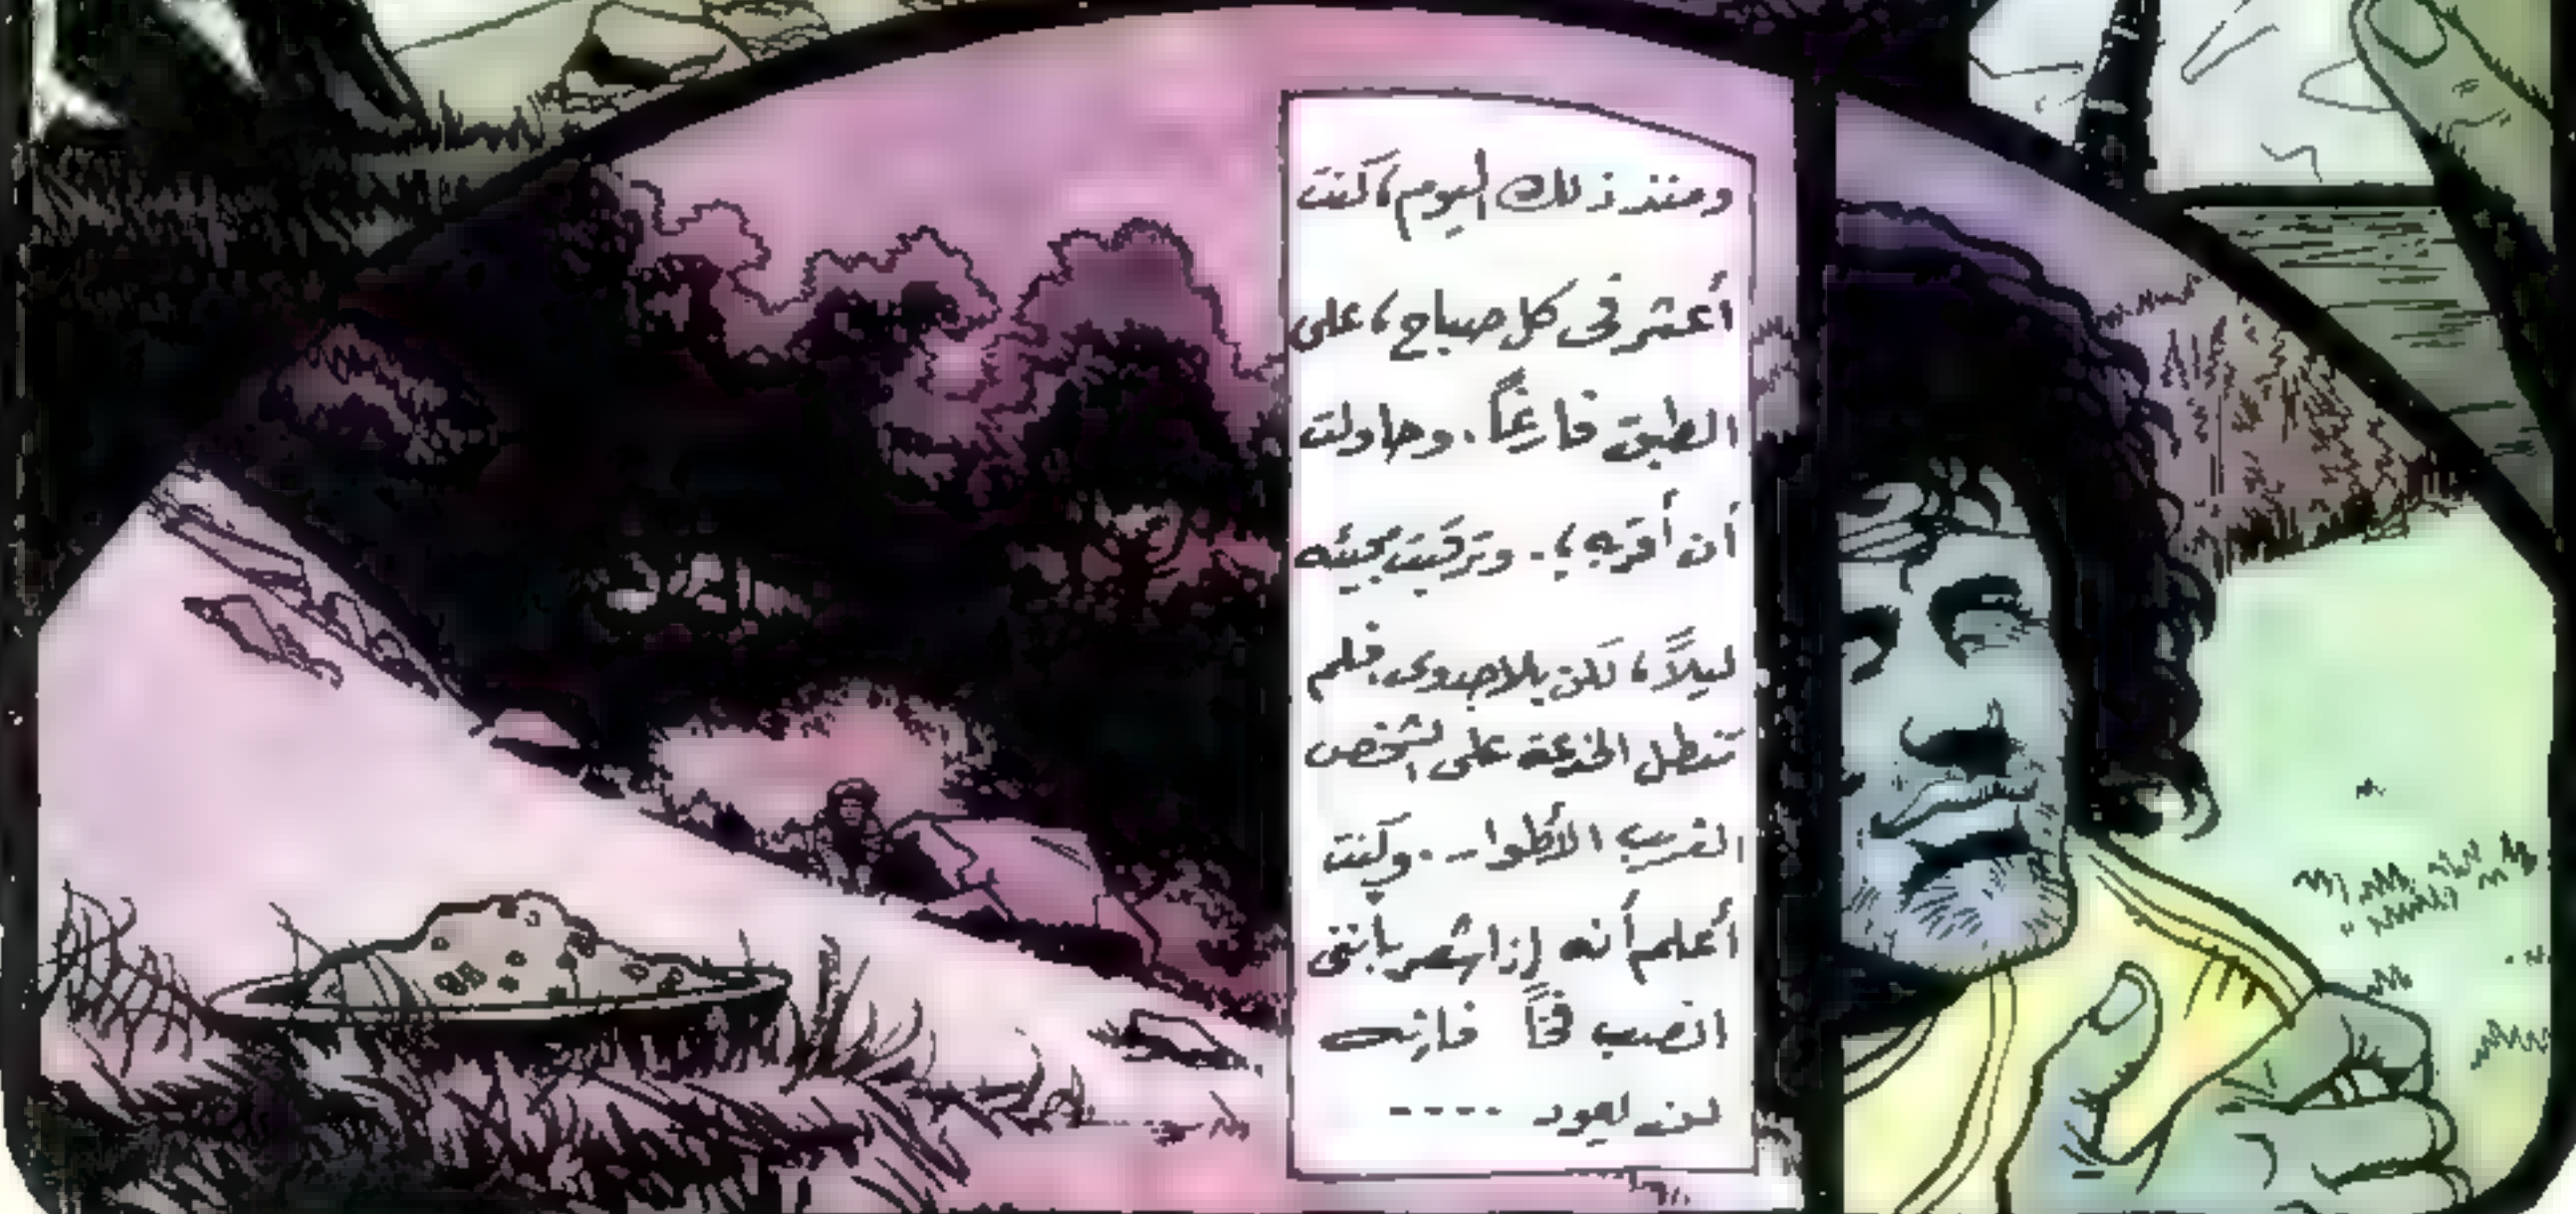 ومنذ ذلك اليوم، كنت
أعثر فى كل صباح، على
الطبق فارغاً. وحاولت
أن أقربه؛. وترقبت مجيئه
ليلاً، لكن بلا جدوى. فلم
تنطل الخدعة على الشخص
الغريب الأطوار.. وكنت
أعلم أنه إذا شعر بأننى
انصب فخاً فإنه
لن يعود ----